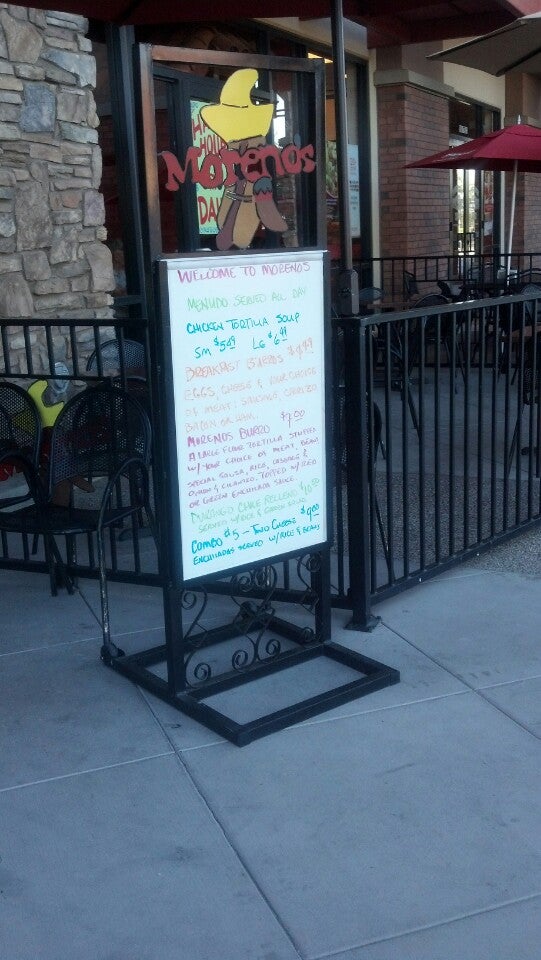 HA
HOU
DAY
Moreno's
WELCOME TO MORENOS
MENUDO SERVED ALL DAY
CHICKEN TORTILLA SOUP
SM $5.49 LG $6.99
BREAKFAST BURROS
EGGS, CHEESE & YOUR CHOICE
OF MEAT: SAUSAGE, CHORIZO,
BACON OR HAM.
MORENOS BURRO $7.00
A LARGE FLOUR TORTILLA STUFFED
W/ YOUR CHOICE OF MEAT, BEANS
SPECIAL SALSA, RICE, CABBAGE &
ONION & CILANTRO. TOPPED W/ RED
OR GREEN ENCHILADA SAUCE.
DURANGO CHILE RELLENO $10.50
SERVED W/ RICE &
COMBO #5 - TWO CHEESE $9.00
ENCHILADAS SERVED W/ RICE & BEANS